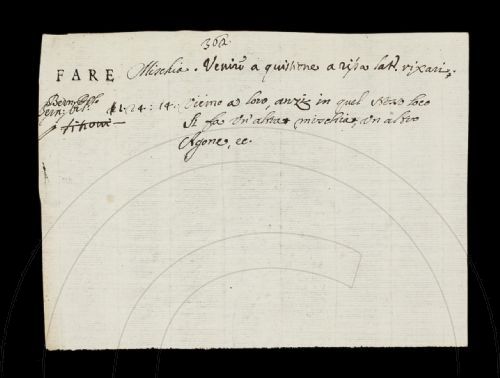 360
FARE Mischia. Venire a quistione a rissa lat. rixari.
1. 24: 14. Vicino a loro, anzi in quel stesso loco
si fa un'altra mischia, un altro
Agone, ec.